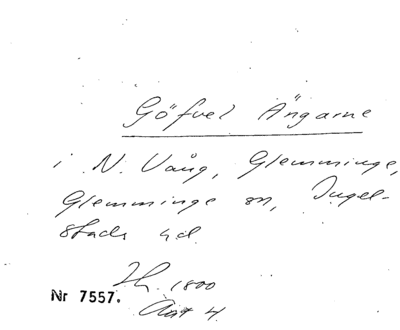 Göfvel Ängarne
i N. Vång, Glemminge,
Glemminge sn, Ingel-
stads hd.
1800
Nr 7557.
4.